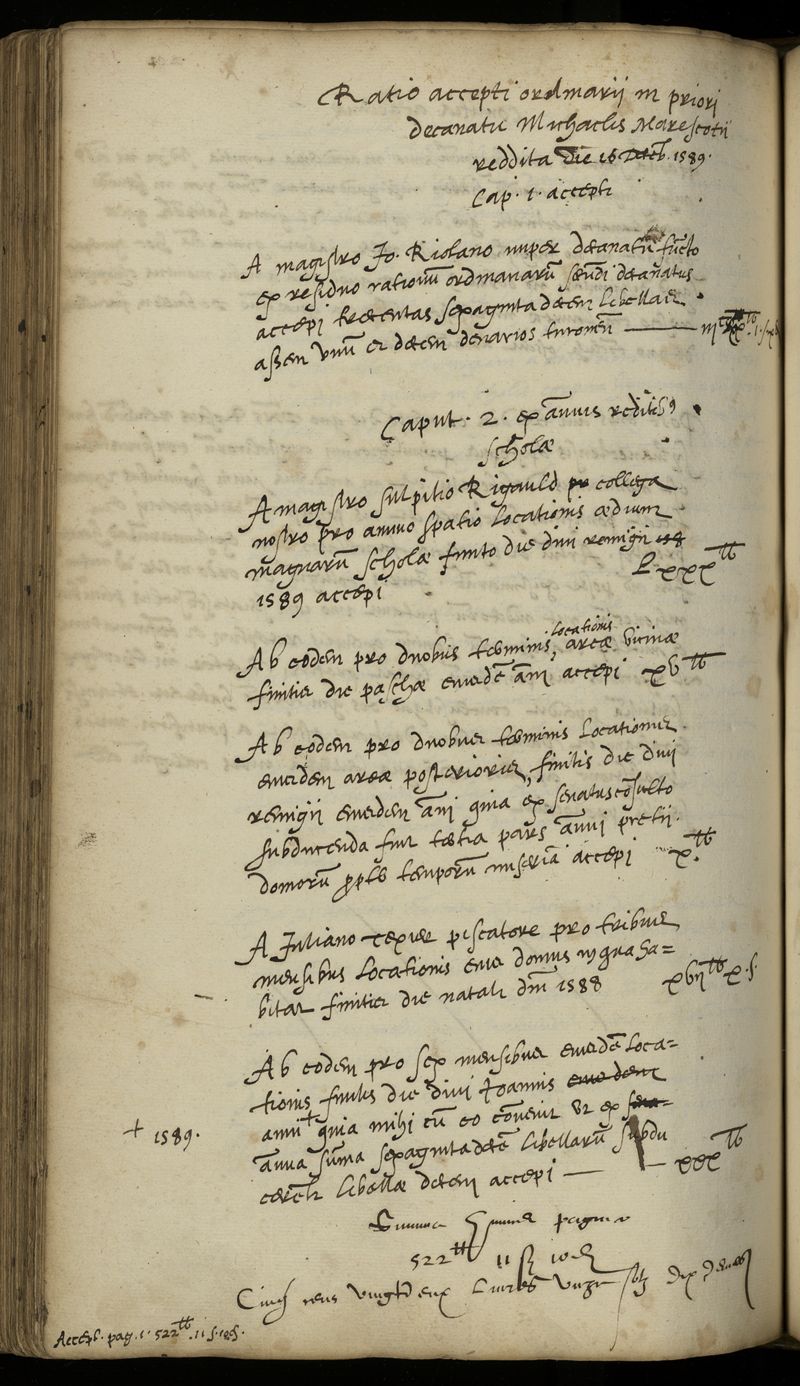 Ratio accepti ordinarii in priori
decanatu Michaelis Marescotii
reddita die 16 Decēb. 1589.
Cap. 1. accepti
A magistro Jo. Riolano nuper decanatu fūcto
ex residuo rationū ordinariarū secūdi decanatus
accepi trecentas sexaginta decem libellas
assem unū et decem denarios turonen̄
Caput. 2. ex annuis reditib9
scholæ
A magistro Sulpitio Rigauld collega
nostro pro annuo spatio locationis ædium
magnarū scholæ finito die divi remigii
1589 accepi L xxx ₶
Ab eodem pro duobus terminis, locationis areæ vicinæ
finitis die paschæ eiusdē āni accepi xv ₶
Ab eodem pro duobus terminis locationis
eiusdem areæ posterioris, finitis die divi
remigii eiusdem āni quia ex senatuscōsulto
subducenda fuit tertia pars ānui pretii
domorū propter temporū miseriā accepi x. ₶
A Juliano Texier piscatore pro tribus
mensibus locationis eius domus in qua ha=
bitat finitis die natali dnī 1588 xvii ₶ x. s.
Ab eodem pro sex mensibus eiusdē loca=
tionis finitis die divi Joannis eiusdem
anni + quia mihi cū eo cōvenit ut ex
+ 1589.
ānua sūma sexaginta decē libellarū subdu
cerent libellæ decem accepi — xxx ₶
Summa pagina
522 ₶ 11 s 10 d
Cinq cens vingt deux livres unze solz dix deniers
Accept. pag. 1. 522 ₶ .11 s. 10 d.